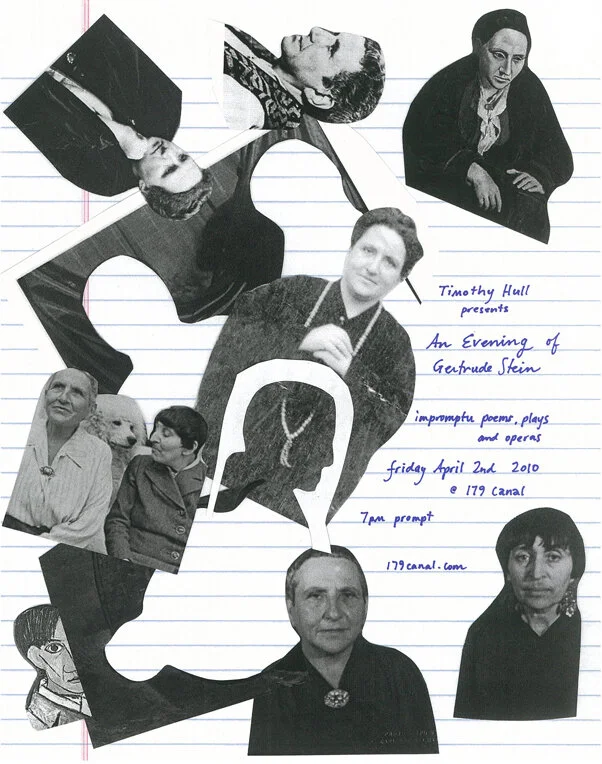 Timothy Hull
presents
An Evening of
Gertrude Stein
impromptu poems, plays
and operas
friday April 2nd 2010
@ 179 Canal
7pm prompt
179canal.com